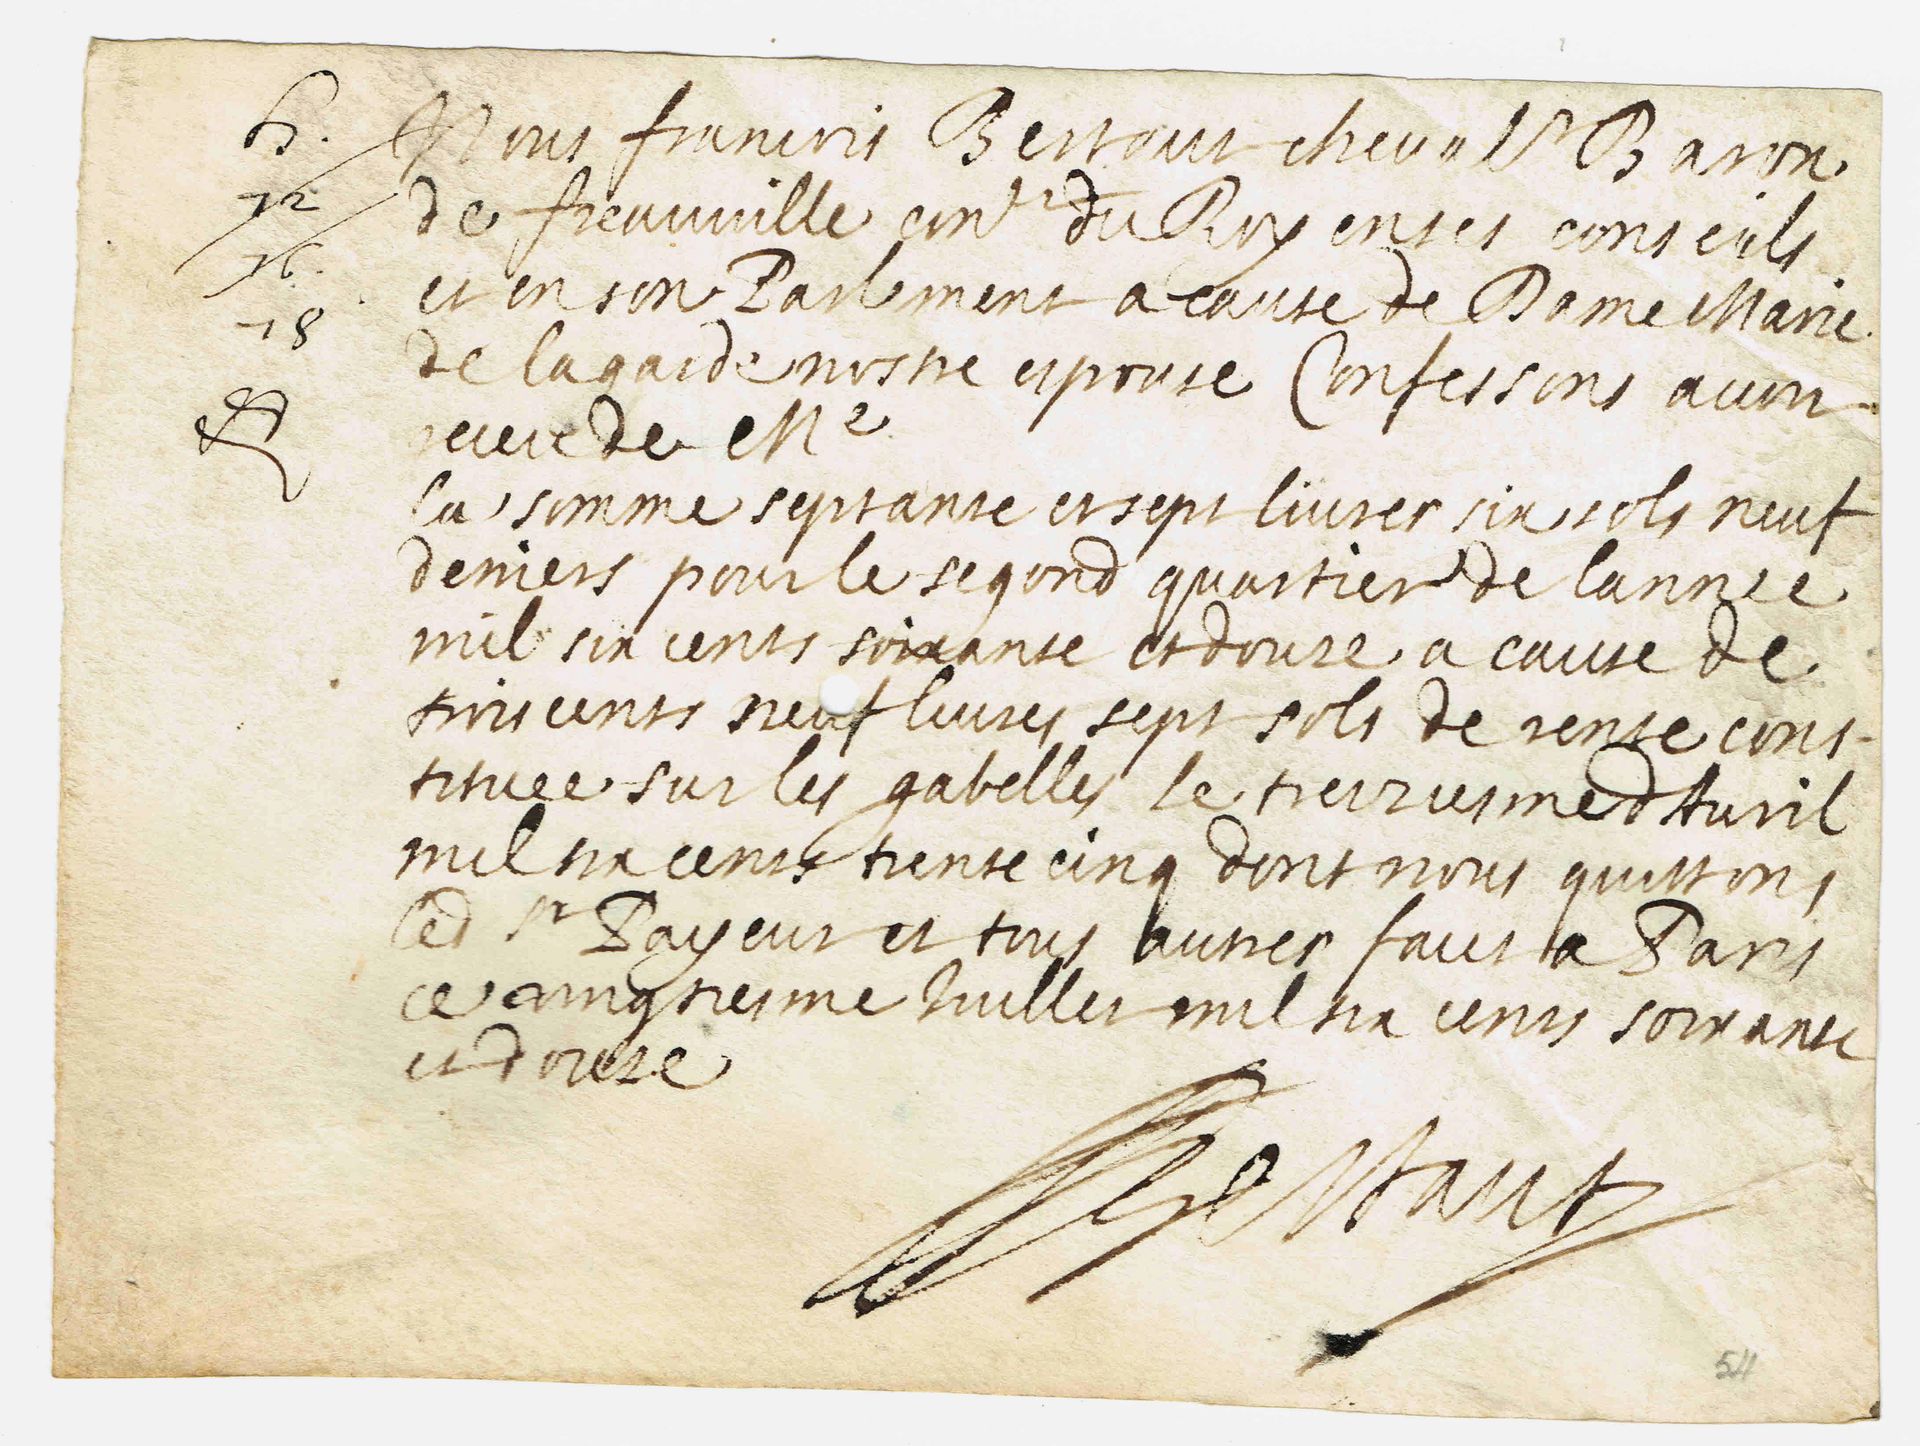 h.
72
76.
78
Nous francois Bertaut cheualr Baron
de freauuille conr du Roy en ses conseils
et en son Parlement a cause de Dame Marie
de lagarde nostre espouse Confessons auoir
receu de Me
la somme septante et sept liures six sols neuf
deniers pour le segond quartier de lannee
mil six cents soixante et douze a cause de
trois cents neuf liures sept sols de rente cons-
tituee sur les gabelles le treiziesme d'Auril
mil six cents trente cinq dont nous quittons
led Sr Payeur et tous autres faict a Paris
ce cinqiesme Juillet mil six cents soixante
et douze
Bertaut
54